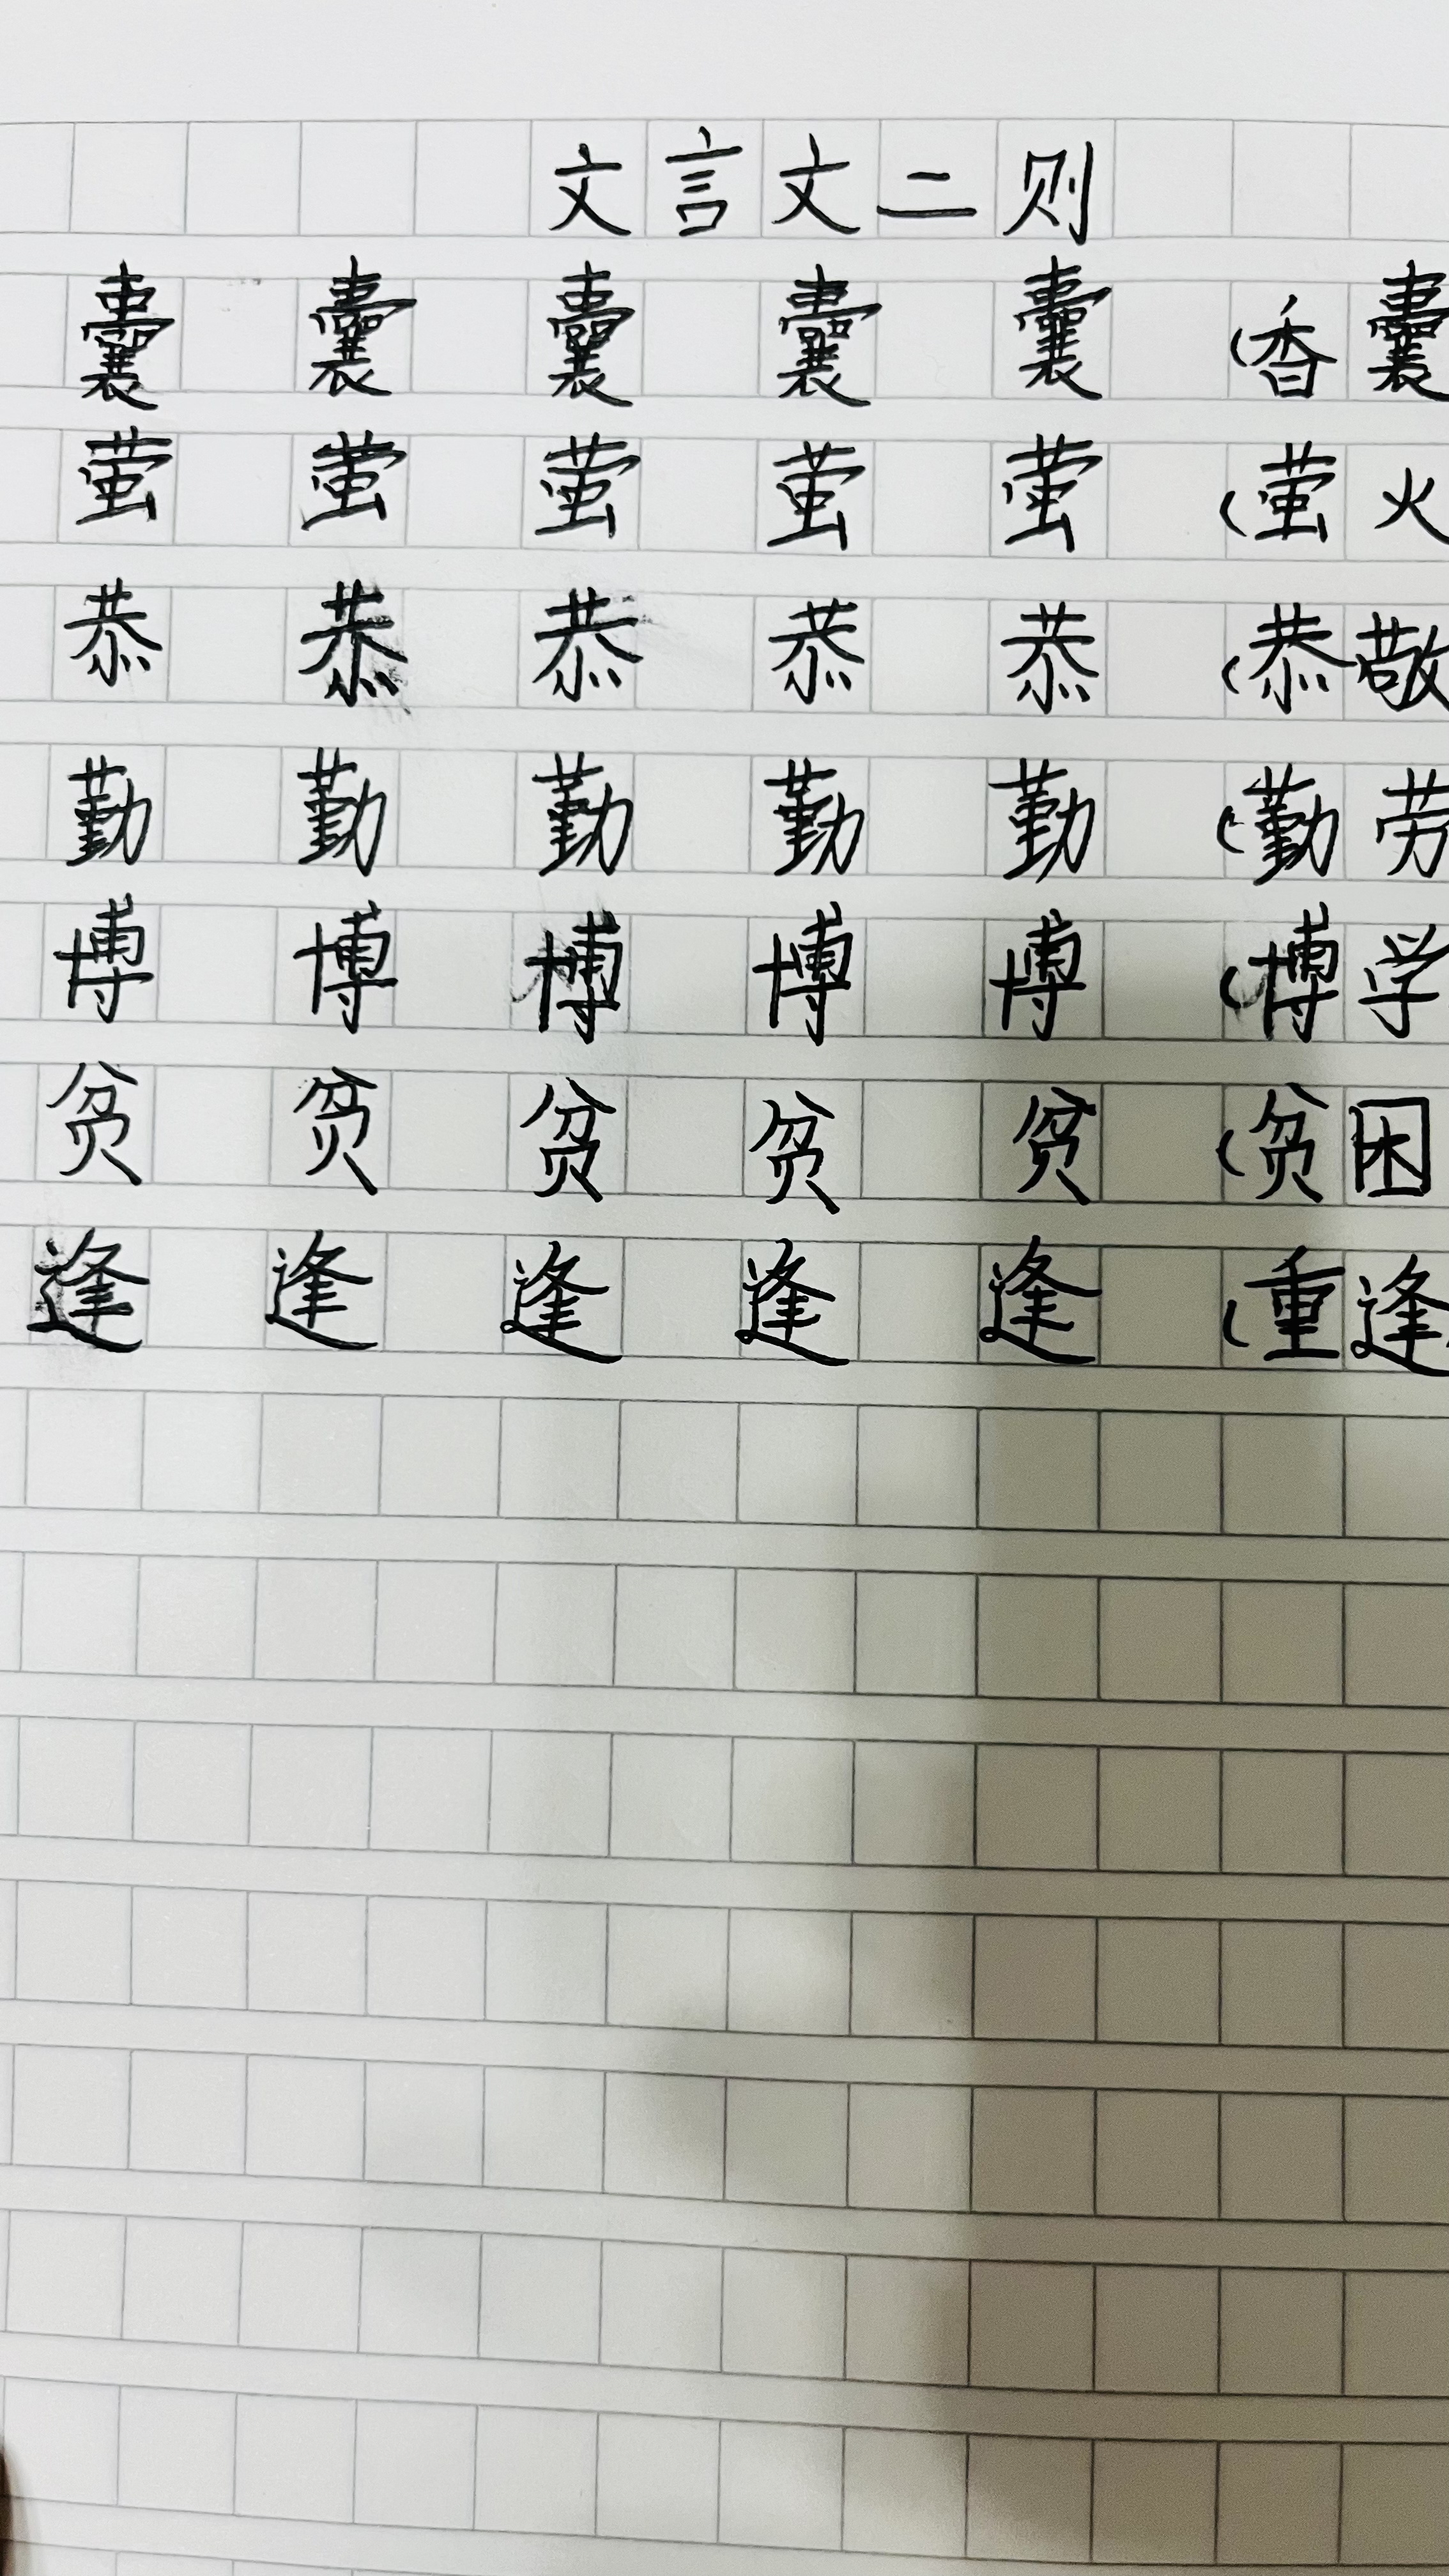 文言文二则
囊 囊 囊 囊 囊 (香囊
萤 萤 萤 萤 萤 (萤火
恭 恭 恭 恭 恭 (恭敬
勤 勤 勤 勤 勤 (勤劳
博 博 博 博 博 (博学
贫 贫 贫 贫 贫 (贫困
逢 逢 逢 逢 逢 (重逢